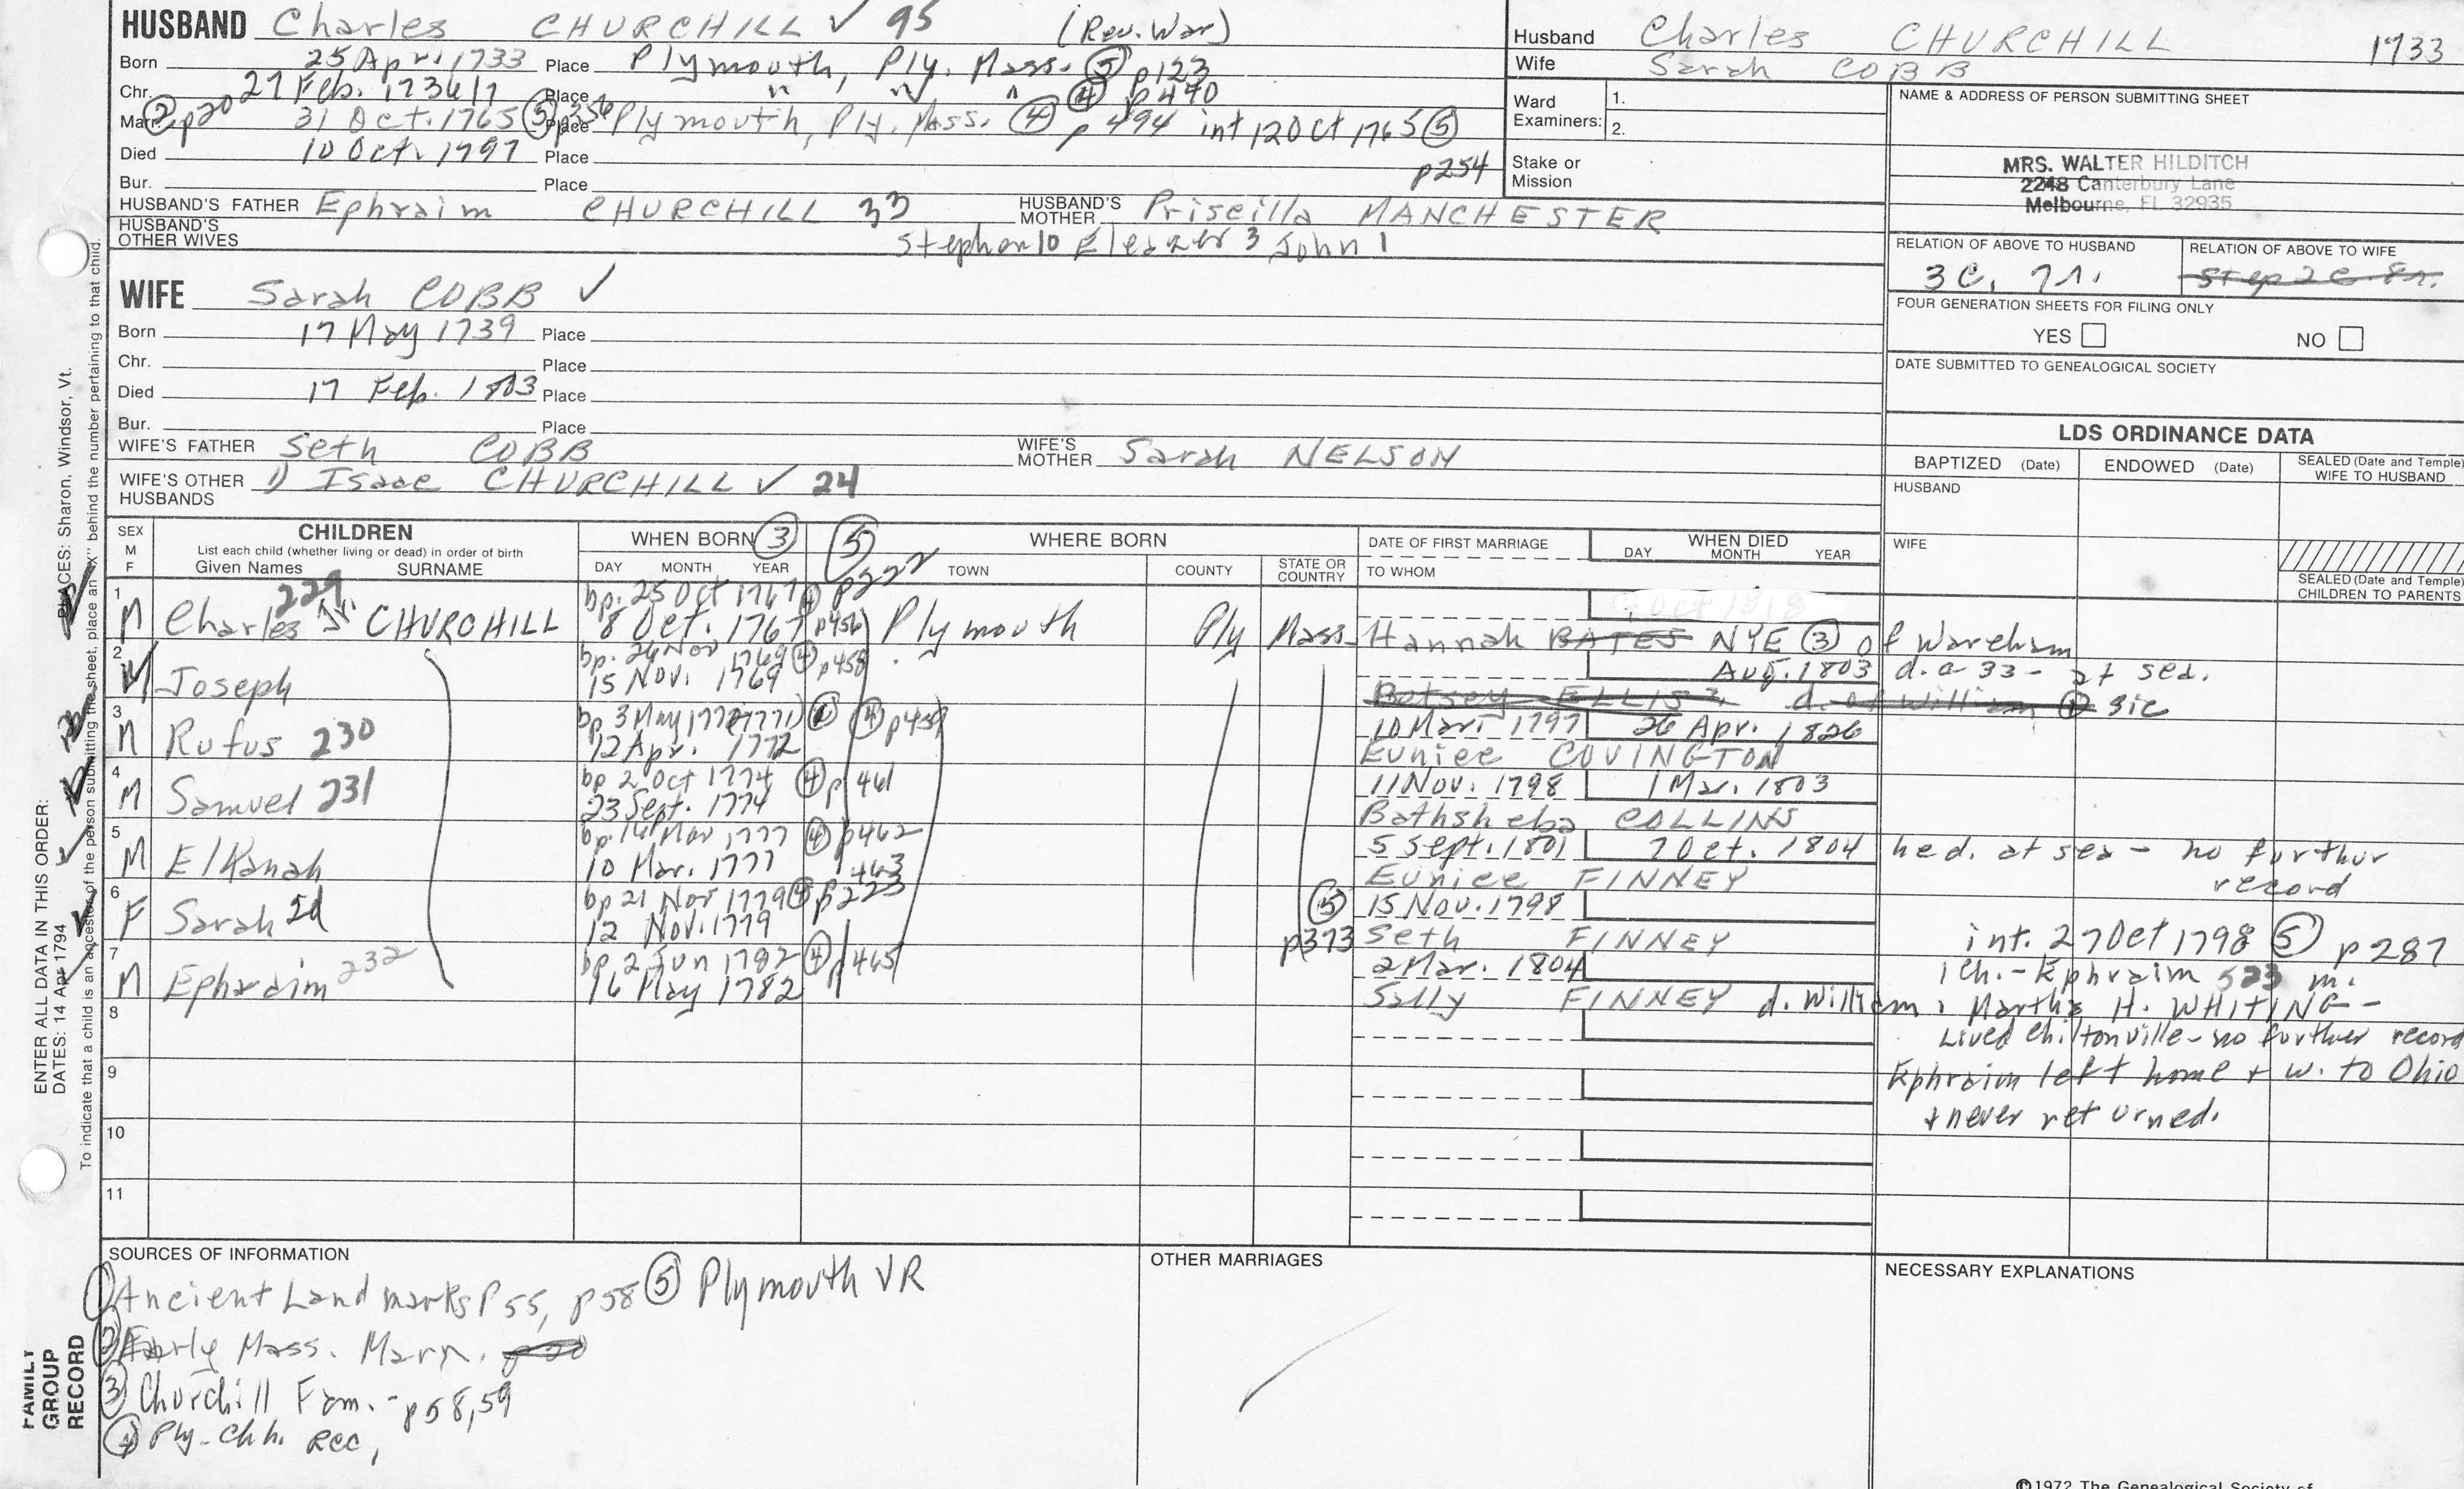 HUSBAND Charles CHURCHILL ✓ 95 (Rev. War)
Born 25 Apr. 1733 Place Plymouth, Ply. Mass. ⑤ p123
Chr. 27 Feb. 1736/7 Place " " " ④ p440
Marr. ② p20 31 Oct. 1765 ⑤ p356 Place Plymouth, Ply. Mass. ④ p494 int 12 Oct 1765 ⑤ p254
Died 10 Oct. 1797 Place
Bur. Place
HUSBAND'S FATHER Ephraim CHURCHILL 33 HUSBAND'S MOTHER Priscilla MANCHESTER
HUSBAND'S OTHER WIVES Stephen 10 Eleazer 3 John 1
WIFE Sarah COBB ✓
Born 17 May 1739 Place
Chr. Place
Died 17 Feb. 1803 Place
Bur. Place
WIFE'S FATHER Seth COBB WIFE'S MOTHER Sarah NELSON
WIFE'S OTHER HUSBANDS 1) Isaac CHURCHILL ✓ 24
Husband Charles CHURCHILL 1733
Wife Sarah COBB
Ward Examiners: 1.
2.
Stake or Mission
NAME & ADDRESS OF PERSON SUBMITTING SHEET
MRS. WALTER HILDITCH
2248 Canterbury Lane
Melbourne, FL 32935
RELATION OF ABOVE TO HUSBAND RELATION OF ABOVE TO WIFE
3C. 7r. Step 2C 8r.
FOUR GENERATION SHEETS FOR FILING ONLY
YES NO
DATE SUBMITTED TO GENEALOGICAL SOCIETY
LDS ORDINANCE DATA
BAPTIZED (Date) ENDOWED (Date) SEALED (Date and Temple) WIFE TO HUSBAND
HUSBAND
WIFE
SEALED (Date and Temple) CHILDREN TO PARENTS
SEX M F CHILDREN WHEN BORN ③ ⑤ p222 WHERE BORN DATE OF FIRST MARRIAGE WHEN DIED
List each child (whether living or dead) in order of birth DAY MONTH YEAR
Given Names SURNAME DAY MONTH YEAR TOWN COUNTY STATE OR COUNTRY TO WHOM
229 bp. 25 Oct 1767 ④
1 M Charles Jr. CHURCHILL 8 Oct. 1767 p456 Plymouth Ply Mass. Hannah BATES NYE ③ of Wareham
bp. 26 Nov 1769 ④ p458 Aug. 1803 d. a 33 - at sea.
2 M Joseph 15 Nov. 1769 Betsey ELLIS? d. of William ① sic
bp 3 May 1772 ④ p459 10 Mar. 1797 26 Apr. 1826
3 M Rufus 230 12 Apr. 1772 Eunice COVINGTON
bp 2 Oct 1774 ④ p461 11 Nov. 1798 1 Mar. 1803
4 M Samuel 231 23 Sept. 1774 Bathsheba COLLINS
bp. 16 Mar 1777 ④ p462 5 Sept. 1801 7 Oct. 1804 he d. at sea - no further record
5 M Elkanah 10 Mar. 1777 Eunice FINNEY
bp 21 Nov 1779 ④ p463 p223 ⑤ 15 Nov. 1798
6 F Sarah 2d 12 Nov. 1779 p373 Seth FINNEY int. 27 Oct 1798 ⑤ p287
bp 2 Jun 1782 ④ p465 2 Mar. 1804 1 ch. - Ephraim 523 m.
7 M Ephraim 232 16 May 1782 Sally FINNEY d. William, Martha H. WHITING -
8 Lived Chiltonville - no further record
9 Ephraim left home + w. to Ohio
+ never returned.
10
11
SOURCES OF INFORMATION OTHER MARRIAGES NECESSARY EXPLANATIONS
① Ancient Landmarks P 55, p 58 ⑤ Plymouth VR
② Early Mass. Marr.
③ Churchill Fam. - p 58, 59
④ Ply. Chh. Rec,
ENTER ALL DATA IN THIS ORDER:
DATES: 14 Apr 1794 PLACES: Sharon, Windsor, Vt.
To indicate that a child is an ancestor of the person submitting the sheet, place an "X" behind the number pertaining to that child.
FAMILY GROUP RECORD
©1972 The Genealogical Society of